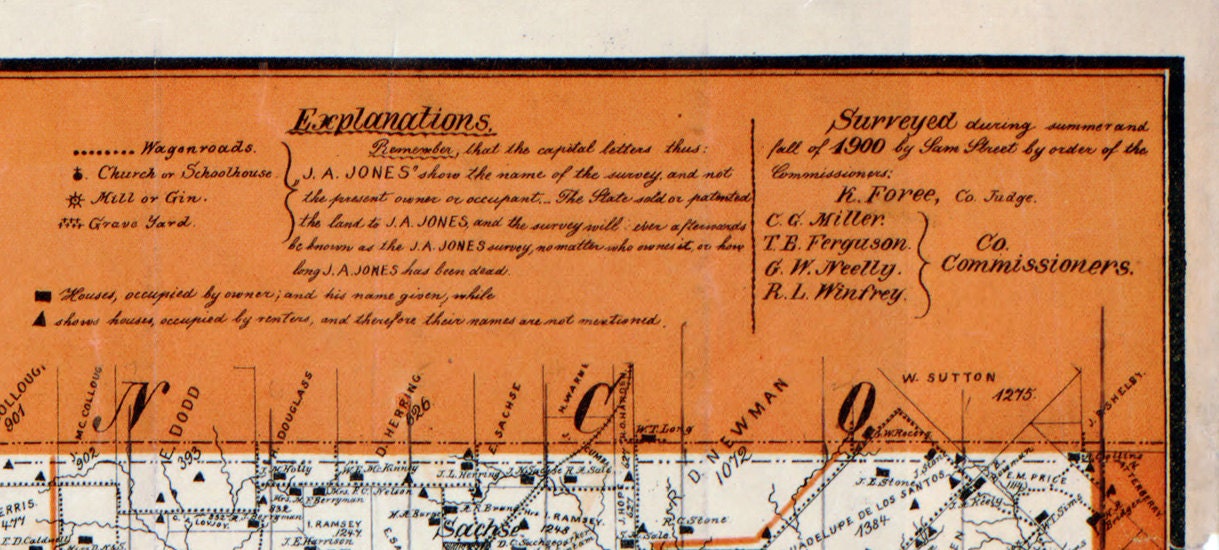 Explanations.
......... Wagonroads.
Church or Schoolhouse.
Mill or Gin.
Grave Yard.
Remember, that the capital letters thus:
"J. A. JONES" show the name of the survey, and not
the present owner or occupant._ The State sold or patented
the land to J. A. JONES, and the survey will ever afterwards
be known as the J.A. JONES survey, no matter who owns it, or how
long J. A. JONES has been dead.
Houses, occupied by owner; and his name given, while
shows houses, occupied by renters, and therefore their names are not mentioned.
Surveyed during summer and
fall of 1900 by Sam Street by order of the
Commissioners:
K. Foree, Co. Judge.
C. G. Miller.
T. B. Ferguson.
G. W. Neelly.
R. L. Winfrey.
Co.
Commissioners.
N
C
O
901
J. McCOLLOUG
902
E. DODD
393
R. DOUGLASS
D. HERRING
626
E. SACHSE
H. WARNE
W. O. HARDEN
627
W. T. Long
R. D. NEWMAN
1072
W. SUTTON
1275.
J. P. SHELBY.
J. M. Holly
W. E. McKinney
Mrs. E. C. Nelson
Mrs. M. F. Berryman
J. L. Herring
J. K. Sachse
R. A. Sala
832
Berryman
C. LOVJOY
I. RAMSEY
1247.
J. E. Harrison
H. A. Burge
Sachse
I. RAMSEY.
1248
D. C. Sachse
J. HOPE
627
R. C. Stone
Sala
J. E. Stone
GUADELUPE DE LOS SANTOS
1384.
L. M. PRICE
King
W. T. Sim
Collins
ERRIS.
477
E. D. Caldwell